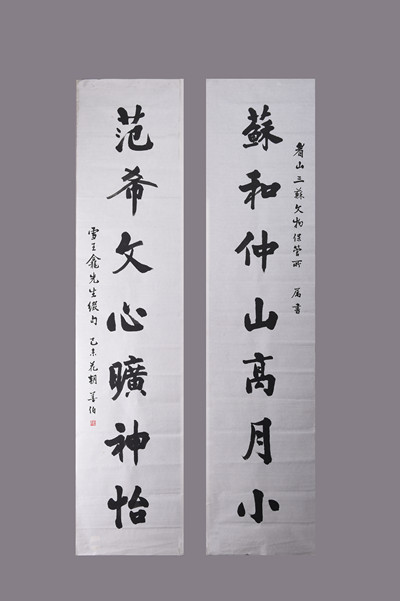 眉山三蘇文物保管所 属書
蘇和仲山高月小
范希文心曠神怡
雪王龕先生缀句 乙未花朝 慕伯